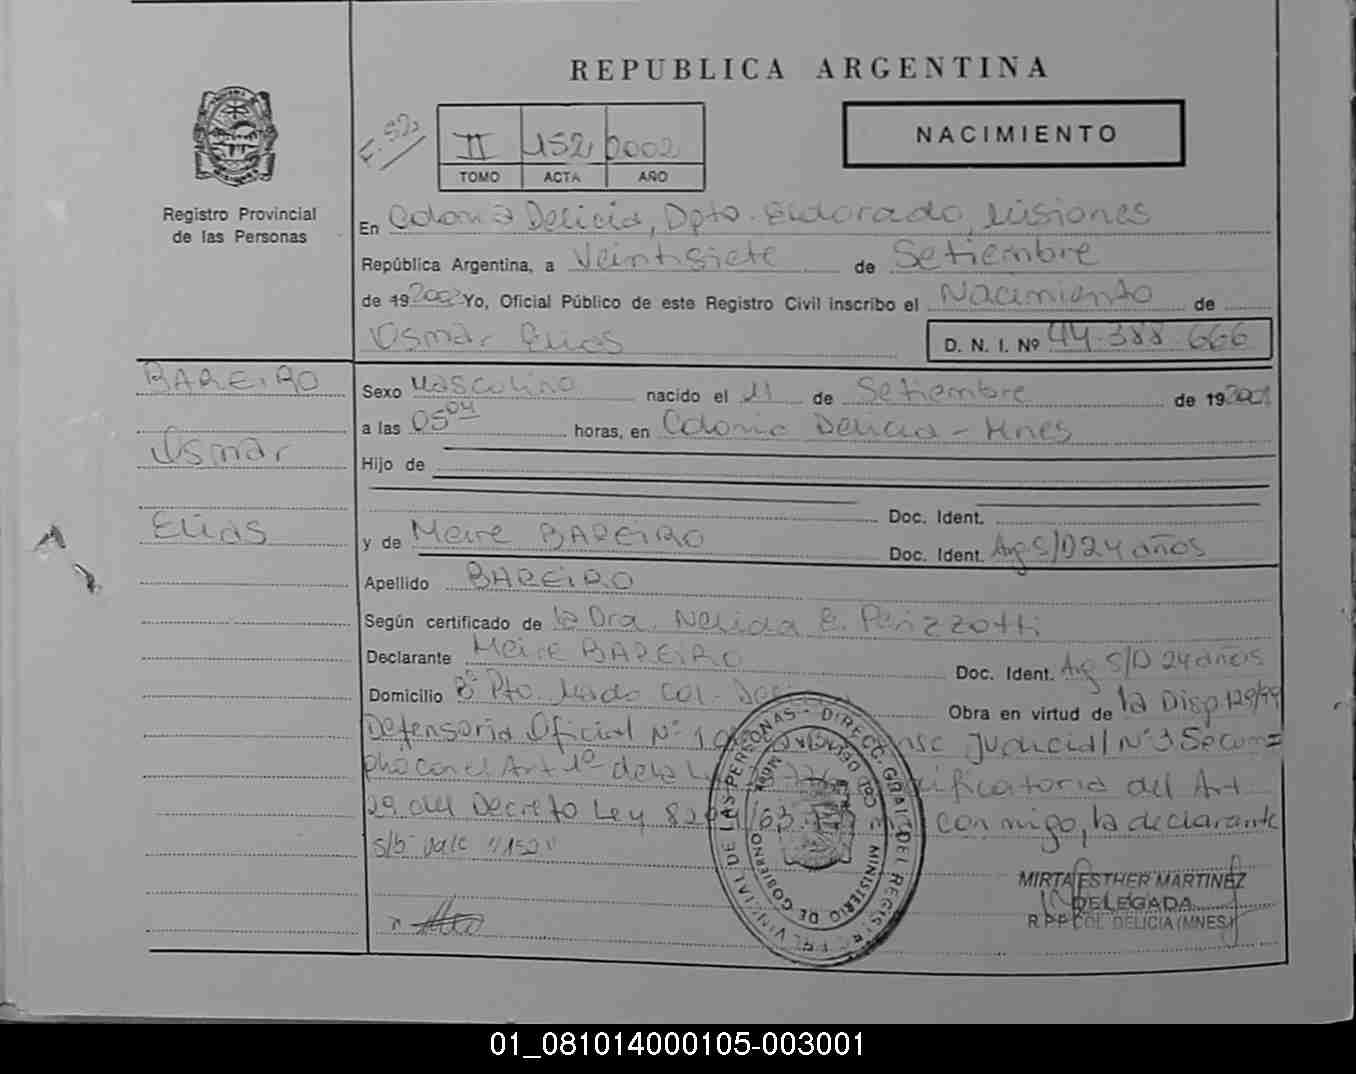 REPUBLICA ARGENTINA
F. 52
II 152 2002
TOMO ACTA AÑO
NACIMIENTO
Registro Provincial
de las Personas
En Colonia Delicia, Dpto. Eldorado, Misiones
República Argentina, a Veintisiete de Setiembre
de 192002 Yo, Oficial Público de este Registro Civil inscribo el Nacimiento de
Osmar Elias D. N. I. Nº 44.388.666
BAREIRO
Osmar
Elias
Sexo Masculino nacido el 11 de Setiembre de 192001
a las 05 04 horas, en Colonia Delicia - Mnes
Hijo de
Doc. Ident.
y de Meire BAREIRO Doc. Ident. Arg S/D 24 años
Apellido BAREIRO
Según certificado de la Dra. Nelida E. Perizzotti
Declarante Meire BAREIRO Doc. Ident. Arg S/D 24 años
Domicilio 8º Pto. Mado Col. Obra en virtud de la Disp. 129/99
Defensoria Oficial Nº 1 Judicial Nº 3 Se cum=
plió con el Art 1º de la modificatoria del Art
29 del Decreto Ley conmigo, la declarante
s/b vale "152"
DIRECC. GRAL. DEL REGISTRO PROVINCIAL DE LAS PERSONAS
MINISTERIO DE GOBIERNO
COL. DELICIA
MIRTA ESTHER MARTINEZ
DELEGADA
R.P.P. COL. DELICIA (MNES)
01_081014000105-003001